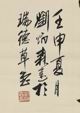 壬申夏月
劉炳森書於
瑞德草堂